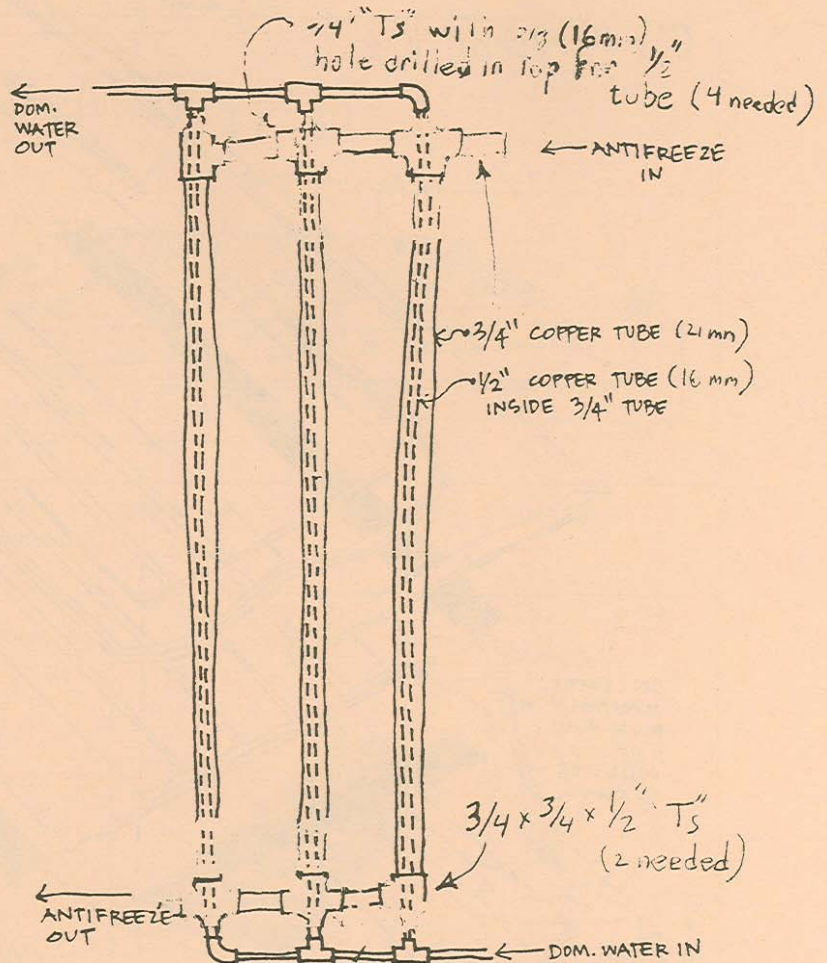 "Ts" with (16mm)
hole drilled in top for 1/2"
tube (4 needed)
DOM.
WATER
OUT
ANTIFREEZE
IN
3/4" COPPER TUBE (21 mm)
1/2" COPPER TUBE (16 mm)
INSIDE 3/4" TUBE
3/4 x 3/4 x 1/2" "Ts"
(2 needed)
ANTIFREEZE
OUT
DOM. WATER IN